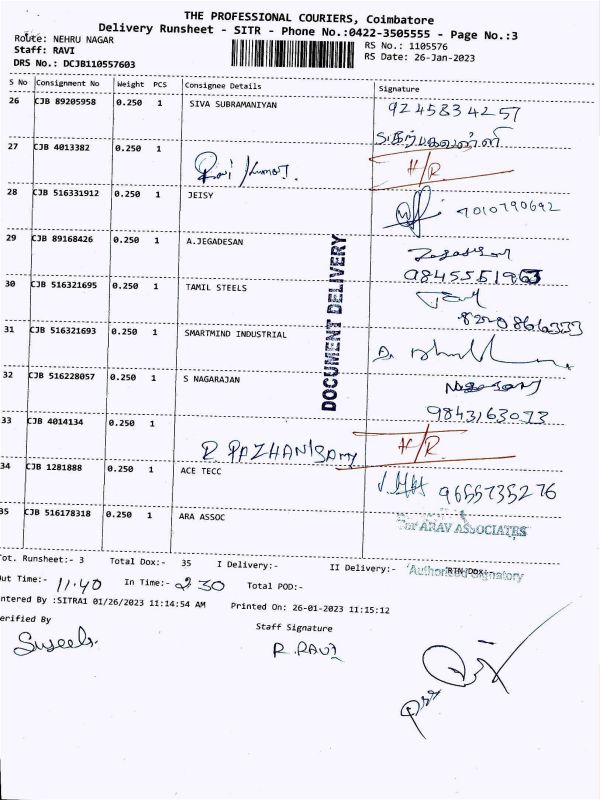 THE PROFESSIONAL COURIERS, Coimbatore
Delivery Runsheet - SITR - Phone No.:0422-3505555 - Page No.:3
Route: NEHRU NAGAR
RS No.: 1105576
Staff: RAVI
RS Date: 26-Jan-2023
DRS No.: DCJB110557603
S No Consignment No Weight PCS Consignee Details Signature
26 CJB 89205958 0.250 1 SIVA SUBRAMANIYAN 9245834257
27 CJB 4013382 0.250 1 H/R
Ravi Kumar.
28 CJB 516331912 0.250 1 JEISY 7010790692
29 CJB 89168426 0.250 1 A.JEGADESAN
9845551963
30 CJB 516321695 0.250 1 TAMIL STEELS
8220866333
31 CJB 516321693 0.250 1 SMARTMIND INDUSTRIAL
32 CJB 516228057 0.250 1 S NAGARAJAN
9843163073
33 CJB 4014134 0.250 1 H/R
P PAZHANISAMY
34 CJB 1281888 0.250 1 ACE TECC 9655735276
35 CJB 516178318 0.250 1 ARA ASSOC
For ARAV ASSOCIATES
DOCUMENT DELIVERY
Tot. Runsheet:- 3 Total Dox:- 35 I Delivery:- II Delivery:- RTN DOX:-
Authorised Signatory
Out Time:- 11.40 In Time:- 2 30 Total POD:-
Entered By :SITRA1 01/26/2023 11:14:54 AM Printed On: 26-01-2023 11:15:12
Verified By
Staff Signature
Suseela.
R. RAVI